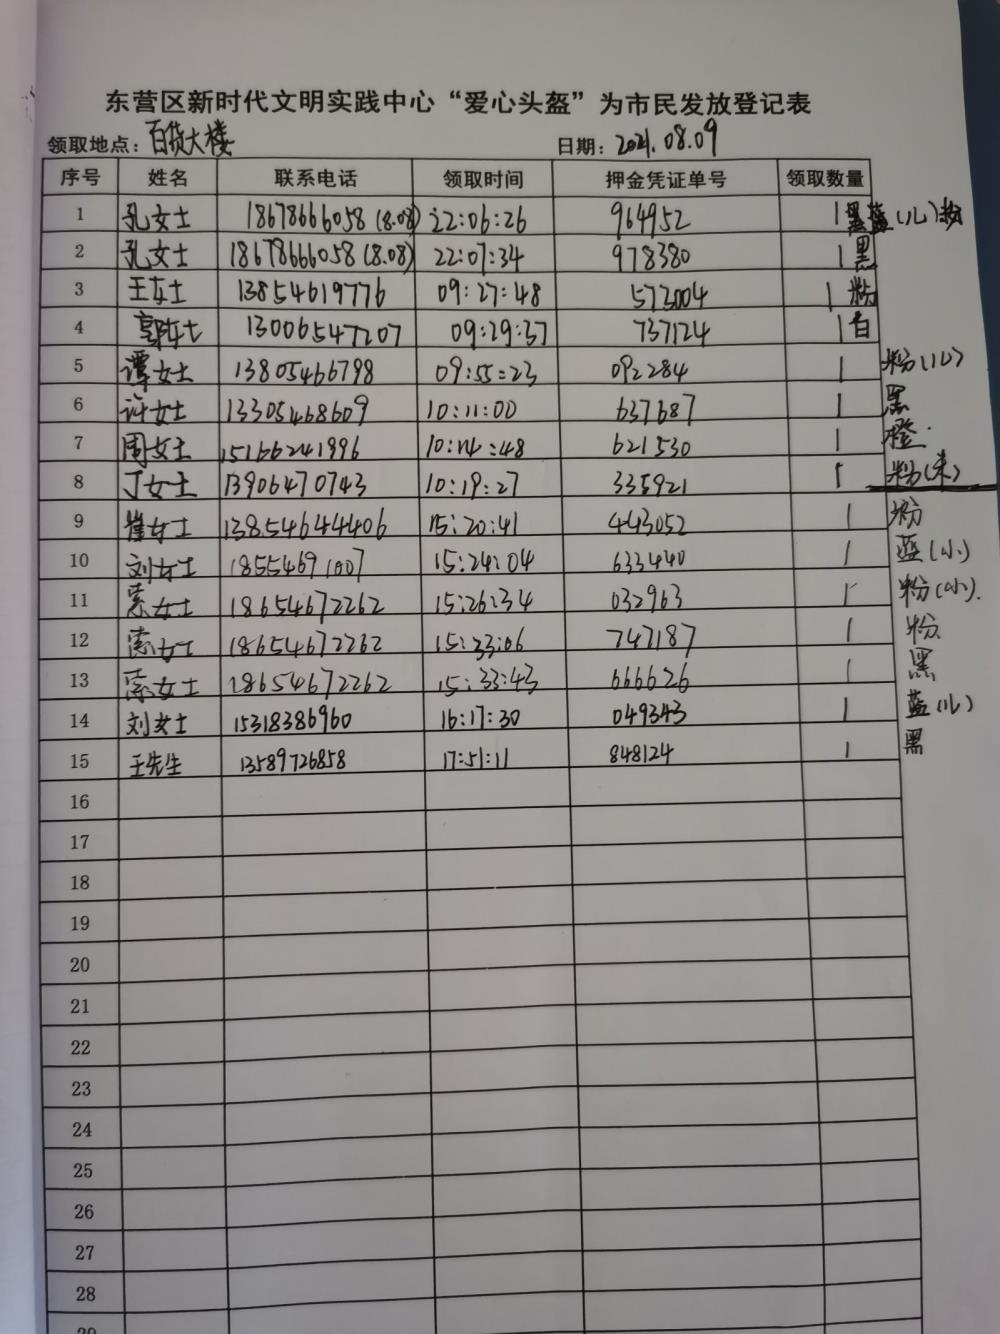 东营区新时代文明实践中心“爱心头盔”为市民发放登记表
领取地点：百货大楼 日期：2021.08.09
序号 姓名 联系电话 领取时间 押金凭证单号 领取数量
1 孔女士 18678666058 (8.08) 22:06:26 964952 1 蓝(儿)粉
2 孔女士 18678666058 (8.08) 22:07:34 978380 1 黑
3 王女士 13854619776 09:27:48 573004 1 粉
4 郭女士 13006547207 09:29:37 737124 1 白
5 谭女士 13805466798 09:55:23 092284 1 粉(儿)
6 许女士 13305468609 10:11:00 637687 1 黑
7 周女士 15166241996 10:14:48 621530 1 橙.
8 丁女士 13906470743 10:19:27 335921 1 粉(未)
9 崔女士 13854644406 15:20:41 443052 1 粉
10 刘女士 18554691007 15:24:04 633440 1 蓝(小)
11 索女士 18654672262 15:26:34 032963 1 粉(小).
12 索女士 18654672262 15:33:06 747187 1 粉
13 索女士 18654672262 15:33:43 666626 1 黑
14 刘女士 15318386960 16:17:30 049343 1 蓝(儿)
15 王先生 13589726858 17:51:11 848124 1 黑
16
17
18
19
20
21
22
23
24
25
26
27
28
29